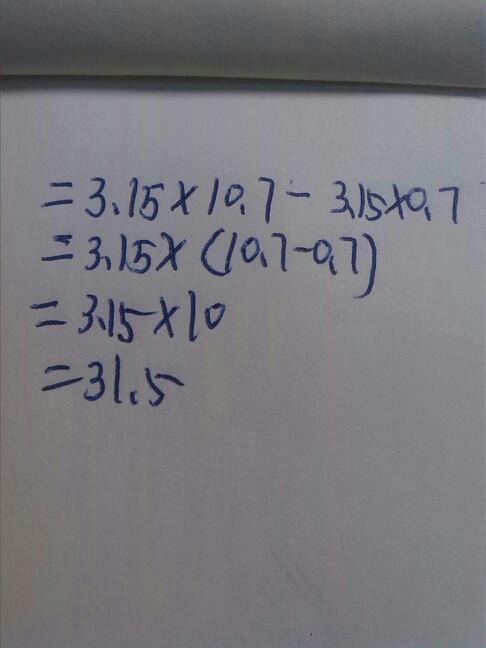 =3.15×10.7-3.15×0.7
=3.15×(10.7-0.7)
=3.15×10
=31.5